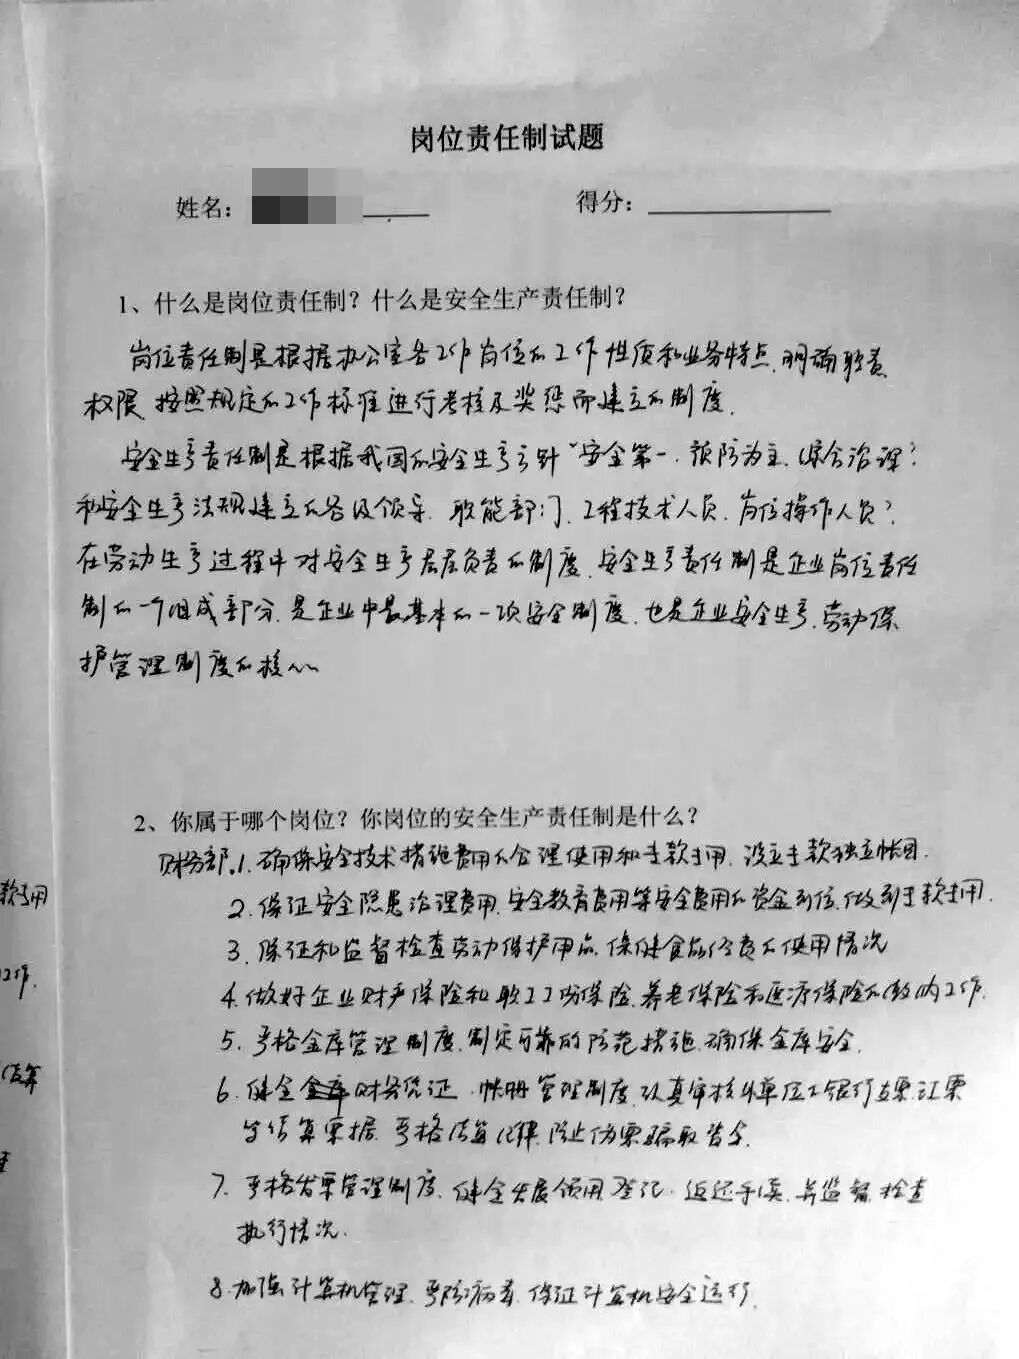 岗位责任制试题
姓名： 得分：
1、什么是岗位责任制？什么是安全生产责任制？
岗位责任制是根据办公室各工作岗位的工作性质和业务特点，明确职责
权限，按照规定的工作标准进行考核及奖惩而建立的制度。
安全生产责任制是根据我国的安全生产方针“安全第一，预防为主，综合治理”
和安全生产法规建立的各级领导、职能部门、工程技术人员、岗位操作人员
在劳动生产过程中对安全生产层层负责的制度。安全生产责任制是企业岗位责任
制的一个组成部分，是企业中最基本的一项安全制度，也是企业安全生产、劳动保
护管理制度的核心
2、你属于哪个岗位？你岗位的安全生产责任制是什么？
财务部.1.确保安全技术措施费用的合理使用和专款专用，设立专款独立帐
2.保证安全隐患治理费用，安全教育费用等安全费用的资金到位，做到专款专用.
3.保证和监督检查劳动保护用品，保健食品经费的使用情况
4.做好企业财产保险和职工工伤保险，养老保险和医疗保险的缴纳工作.
5.严格金库管理制度，制定可靠的防范措施，确保金库安全.
6.健全财务凭证、帐册管理制度，认真审核外单位的银行支票，汇票
等结算票据，严格结算纪律，防止伪票骗取资金.
7.严格发票管理制度，健全发展领用登记、返还手续，并监督检查
执行情况.
8.加强计算机管理，严防病毒，保证计算机安全运行.
款专用
工作.
结算